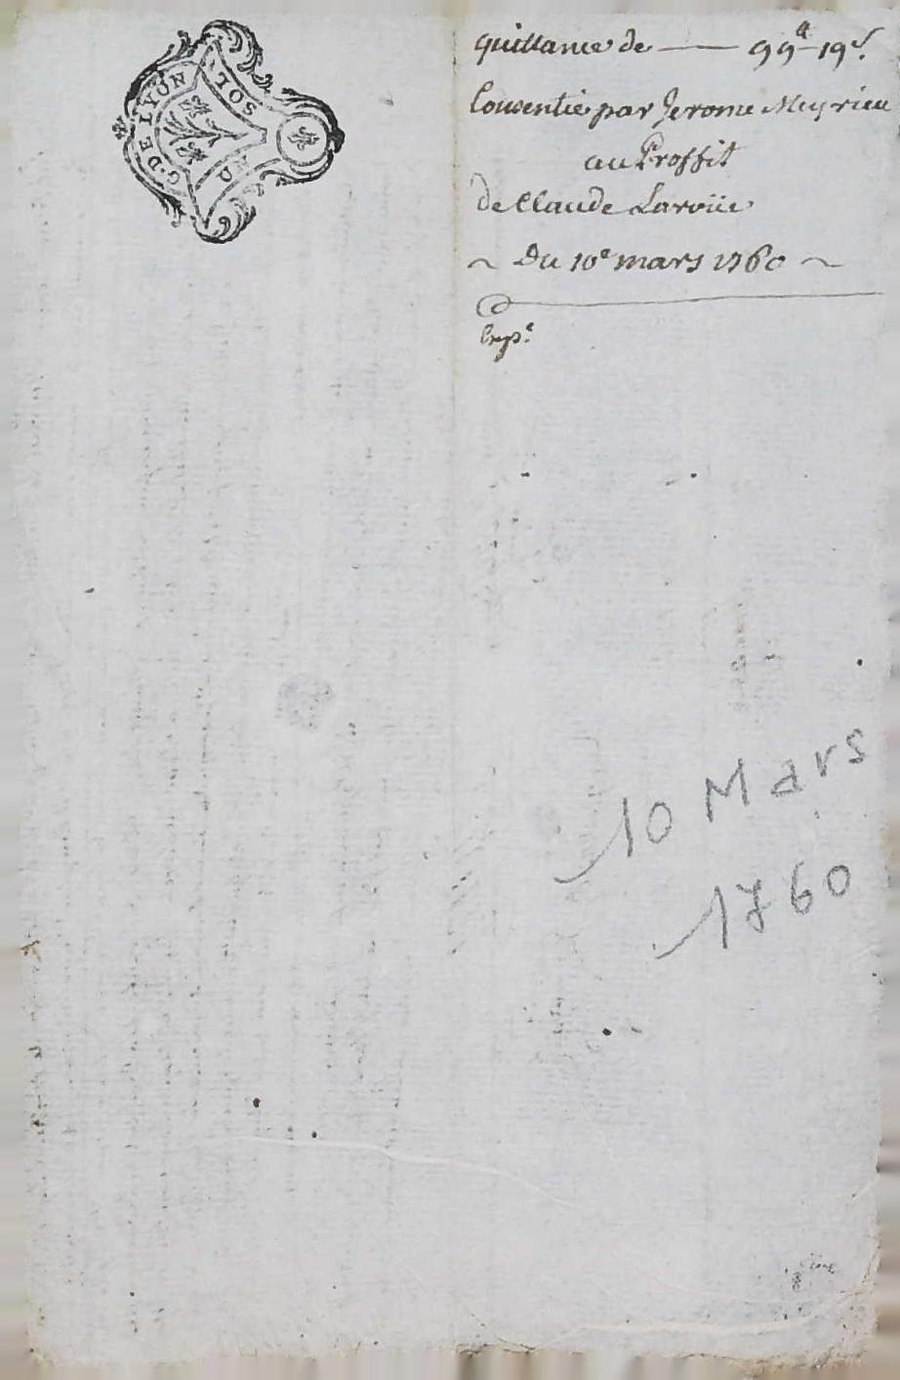 G. DE LYON
UN SOL.
quittance de —— 99ᵗᵗ 19ˢ.
Consentie par Jerome Meyrieu
au Proffit
de Claude Laroüe
~ Du 10ᵉ mars 1760 ~
Exp.ᵉ
10 Mars
1760